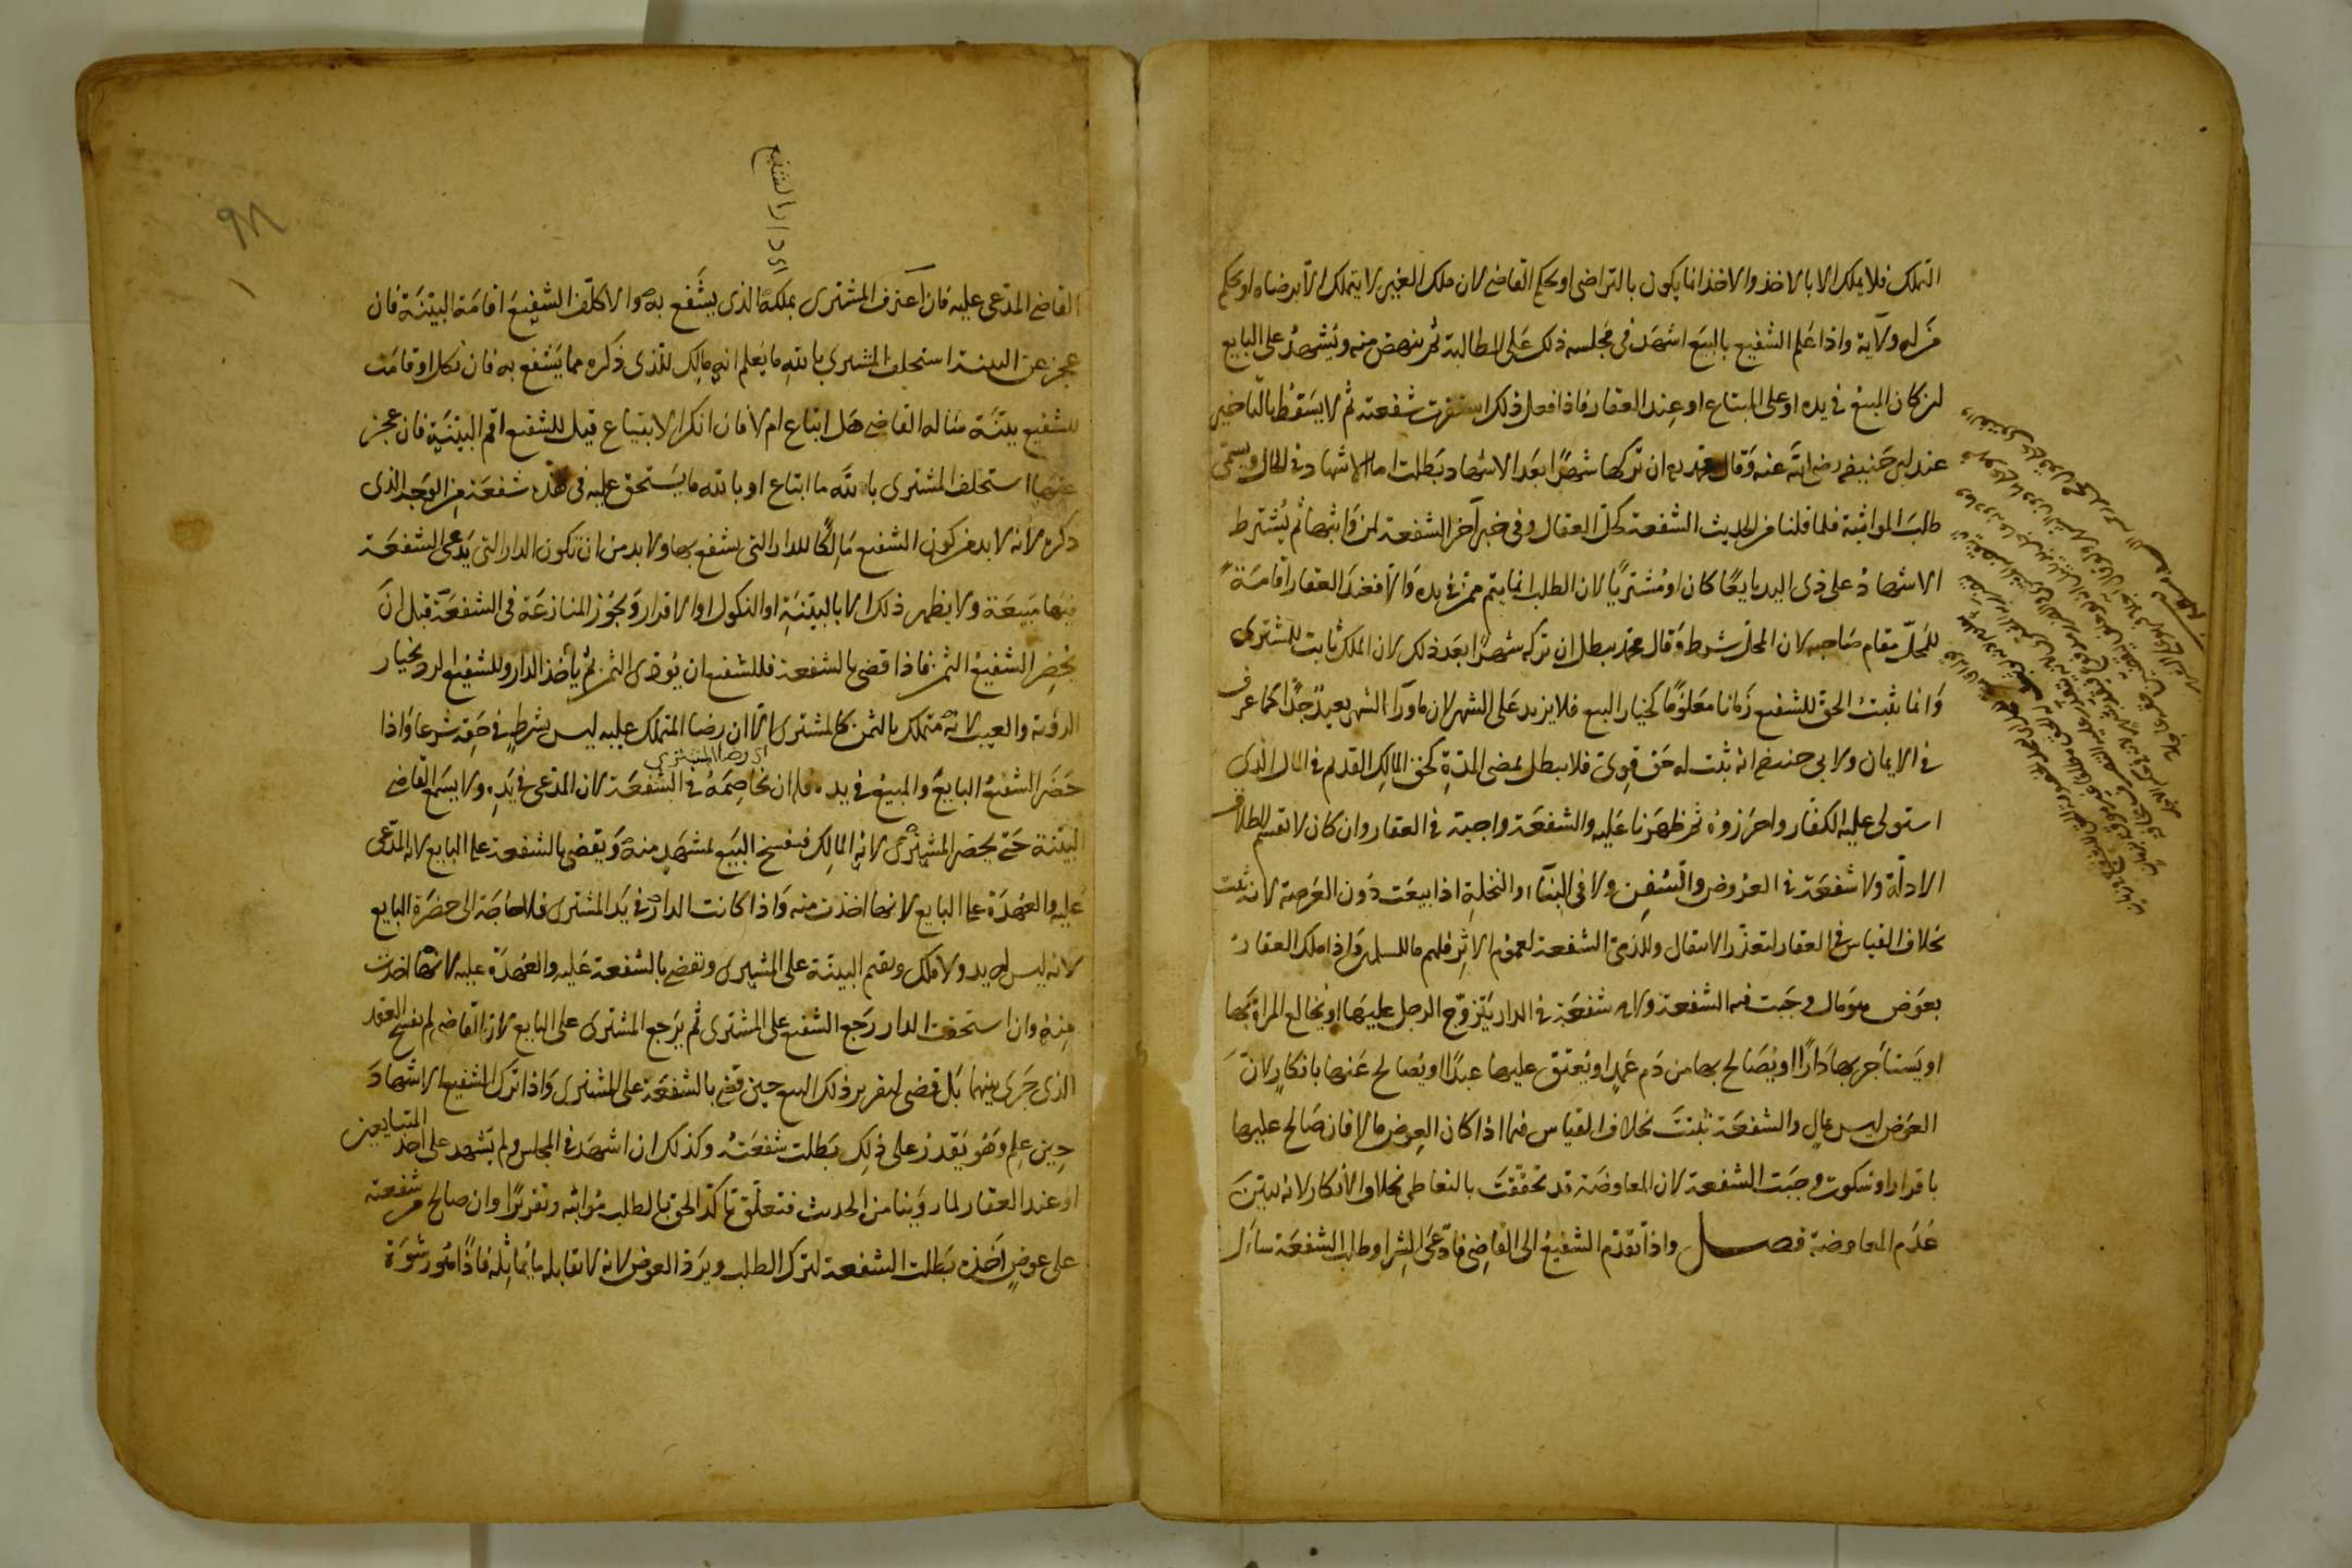 التملك فلا يملك الا بالاخذ والاخذ انما يكون بالتراضى او بحكم القاضى لان ملك الغير لا يتملك الا برضاه او بحكم
من له ولاية واذا علم الشفيع بالبيع اشهد فى مجلسه ذلك على المطالبة ثم ينهض منه ويشهد على البايع
ان كان المبيع فى يده او على المبتاع او عند العقار فاذا فعل ذلك استقرت شفعته ثم لا يسقط بالتاخير
عند ابى حنيفه رضى الله عنه وقال محمد ان تركها شهرا بعد الاشهاد بطلت اما الاشهاد فى الحال ويسمى
طلب المواثبة فلما قلنا من الحديث الشفعة كحل العقال وفى خبر آخر الشفعة لمن واثبها ثم يشترط
الاشهاد على ذى اليد بايعا كان او مشتريا لان الطلب انما يتم ممن فى يده والا فعند العقار اقامة
للمحل مقام صاحبه لان المحل شرط وقال محمد يبطل ان تركه شهرا بعد ذلك لان الملك ثابت للمشترى
وانما يثبت الحق للشفيع زمانا معلوما كخيار البيع فلا يزيد على الشهر لان ماورآ الشهر بعيد جدا كما عرف
فى الايمان ولابى حنيفه انه ثبت له حق قوى فلا يبطل بمضى المدة كحق المالك القديم فى المال الذى
استولى عليه الكفار واحرزوه ثم ظهرنا عليه والشفعة واجبة فى العقار وان كان لا يقسم لاطلاق
الادلة ولا شفعة فى العروض والسفن ولا فى البنآ والنخلة اذا بيعت دون العرصة لانه ثبت
بخلاف القياس فى العقار لتعذر الانتقال وللذمى الشفعة لعموم الاثر فلهم ما للمسلمين واذا ملك العقار
بعوض هو مال وجبت فيه الشفعة ولا شفعة فى الدار يتزوج الرجل عليها او يخالع المراة بها
او يستأجر بها دارا او يصالح بها من دم عمد او يعتق عليها عبدا او يصالح عنها بانكار لان
العوض ليس بمال والشفعة ثبتت بخلاف القياس فيما اذا كان العوض مالا فان صالح عليها
باقرار او سكوت وجبت الشفعة لان المعاوضة قد تحققت بالتعاطى بخلاف الانكار لانه ليبين
عدم المعاوضة فصل واذا تقدم الشفيع الى القاضى فادعى الشرا وطلب الشفعة سأل
اى دار الشفيع
القاضى المدعى عليه فان اعترف المشترى بملكه الذى يشفع به والا كلف الشفيع اقامة البينة فان
عجز عن البينة استحلف المشترى بالله ما يعلم انه مالك للذى ذكره مما يشفع به فان نكل او قامت
للشفيع بينة سأله القاضى هل ابتاع ام لا فان انكر الابتياع قيل للشفيع اقم البينة فان عجز
عنها استحلف المشترى بالله ما ابتاع او بالله ما يستحق عليه فى هذه شفعة من الوجه الذى
ذكره لانه لا بد من كون الشفيع مالكا للدار التى يشفع بها ولا بد من ان تكون الدار التى يدعى الشفعة
فيها مبيعة ولا يظهر ذلك الا بالبينة او النكول او الاقرار وتجوز المنازعة فى الشفعة قبل ان
يحضر الشفيع الثمن فاذا قضى بالشفعة فللشفيع ان يؤدى الثمن ثم يأخذ الدار وللشفيع الرد بخيار
الرؤية والعيب لانه متملك بالثمن كالمشترى الا ان رضا المتملك عليه ليس بشرط فى حقه شرعا واذا
اى رضا المشترى
حضر الشفيع البايع والمبيع فى يده فله ان يخاصمه فى الشفعة لان المدعى فى يده ولا يسمع القاضى
البينة حتى يحضر المشترى لانه المالك فيفسخ البيع بمشهد منه ويقضى بالشفعة على البايع لانه المدعى
عليه والعهدة على البايع لانها اخذت منه واذا كانت الدار فى يد المشترى فلا حاجة الى حضرة البايع
لانه ليس له يد ولا ملك ويقيم البينة على المشترى ويقضى بالشفعة عليه والعهدة عليه لانها اخذت
منه وان استحقت الدار رجع الشفيع على المشترى ثم يرجع المشترى على البايع لان القاضى لم يفسخ العقد
الذى جرى بينهما بل قضى لتقرير ذلك البيع حين قضى بالشفعة على المشترى واذا ترك الشفيع الاشهاد
حين علم وهو يقدر على ذلك بطلت شفعته وكذلك ان اشهد فى المجلس ولم يشهد على احد المتبايعين
او عند العقار لما روينا من الحديث فتعلق تأكد الحق بالطلب مواثبه وتقريرا وان صالح من شفعته
على عوض اخذه بطلت الشفعة لترك الطلب ويرد العوض لانه لا يقابله ما يماثله فاذا هو رشوة